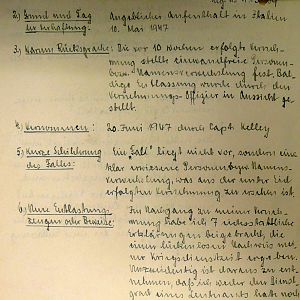 2) Grund und Tag der Verhaftung: Angeblicher Aufenthalt in Italien
10. Mai 1947
3) Warum Rücksprache: Die vor 10 Wochen erfolgte Verneh-
mung stellte einwandfreie Personen-
bzw. Namensverwechslung fest. Bal-
dige Entlassung wurde durch den
Vernehmungs-Offizier in Aussicht ge-
stellt.
4) Vernommen: 20. Juni 1947 durch Capt. Kelley
5) Kurze Schilderung des Falles: Ein "Fall" liegt nicht vor, sondern eine
klar erwiesene Personen bzw. Namens-
verwechslung, was aus der unter 3) ad
erfolgten Vernehmung zu ersehen ist.
6) Neue Entlastungs-
zeugen oder Beweise: Im Nachgang zu meiner Verneh-
mung habe ich 7 eidesstattliche
Erklärungen beigebracht, die
einen lückenlosen Nachweis mei-
ner Kriegsdienstzeit ergeben.
Unzweideutig ist daraus zu ent-
nehmen, daß ich weder den Dienst-
grad eines Leutnants hatte noch